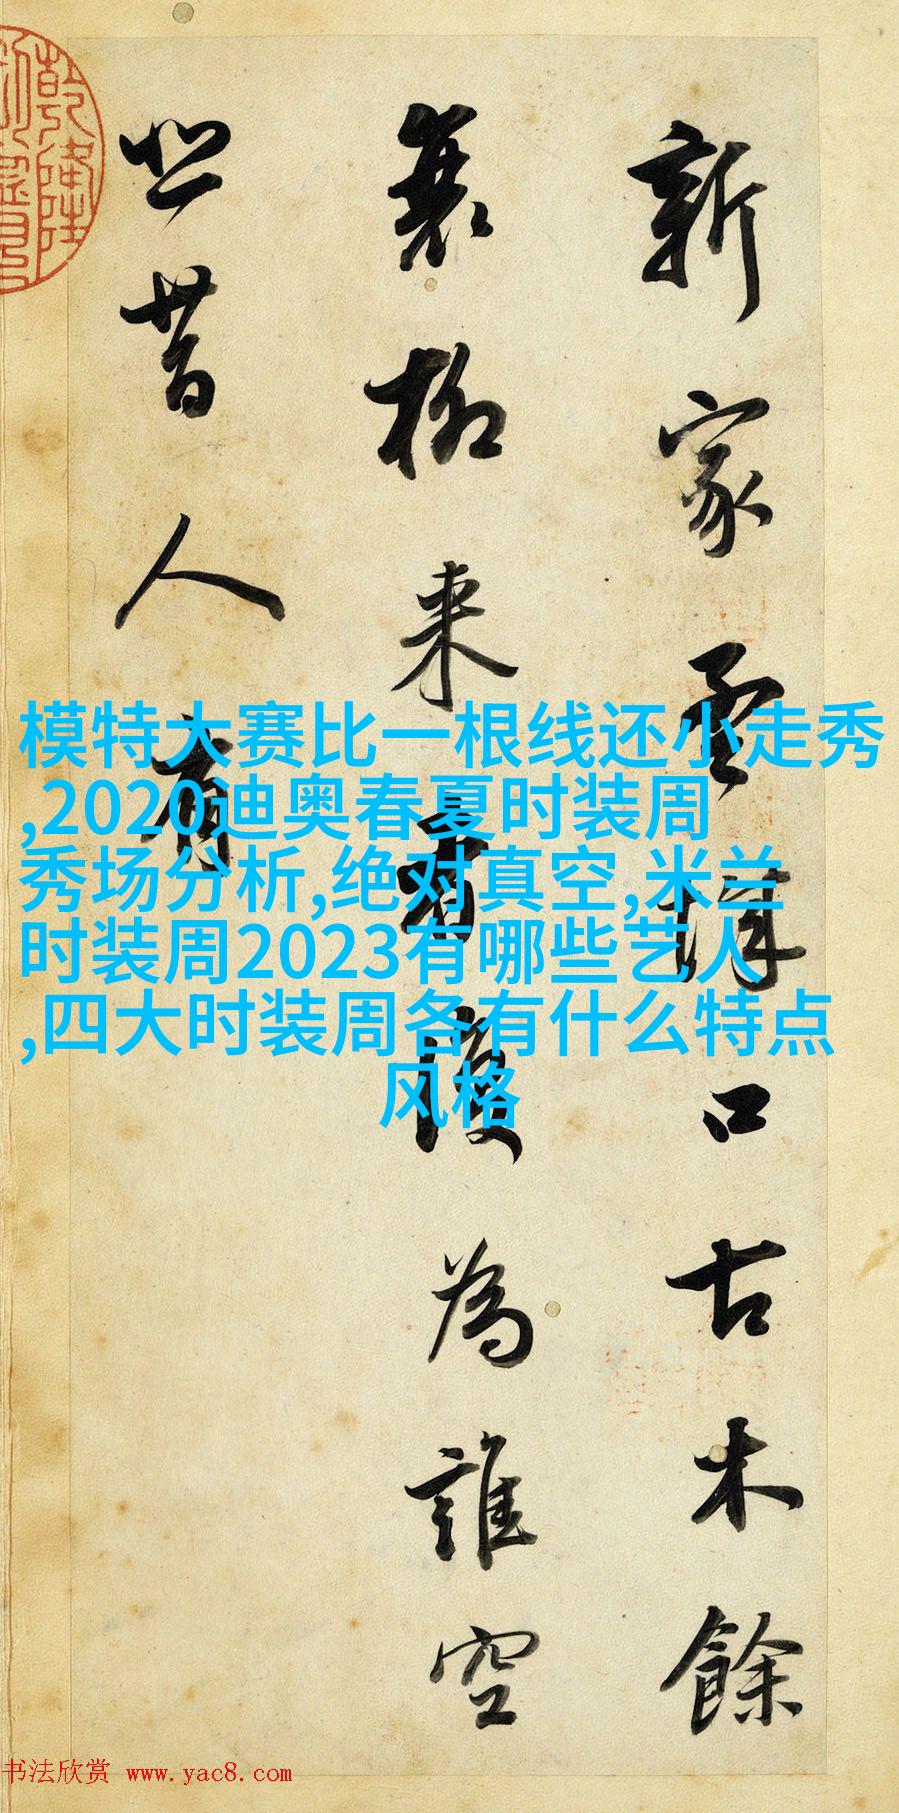 新家孟城口古木餘
衰柳来者復為誰空
悲昔人有
乾隆
模特大赛比一根线还小走秀
,2020迪奥春夏时装周
秀场分析,绝对真空,米兰
时装周2023有哪些艺人
,四大时装周各有什么特点
风格
书法欣赏 www.yac8.com